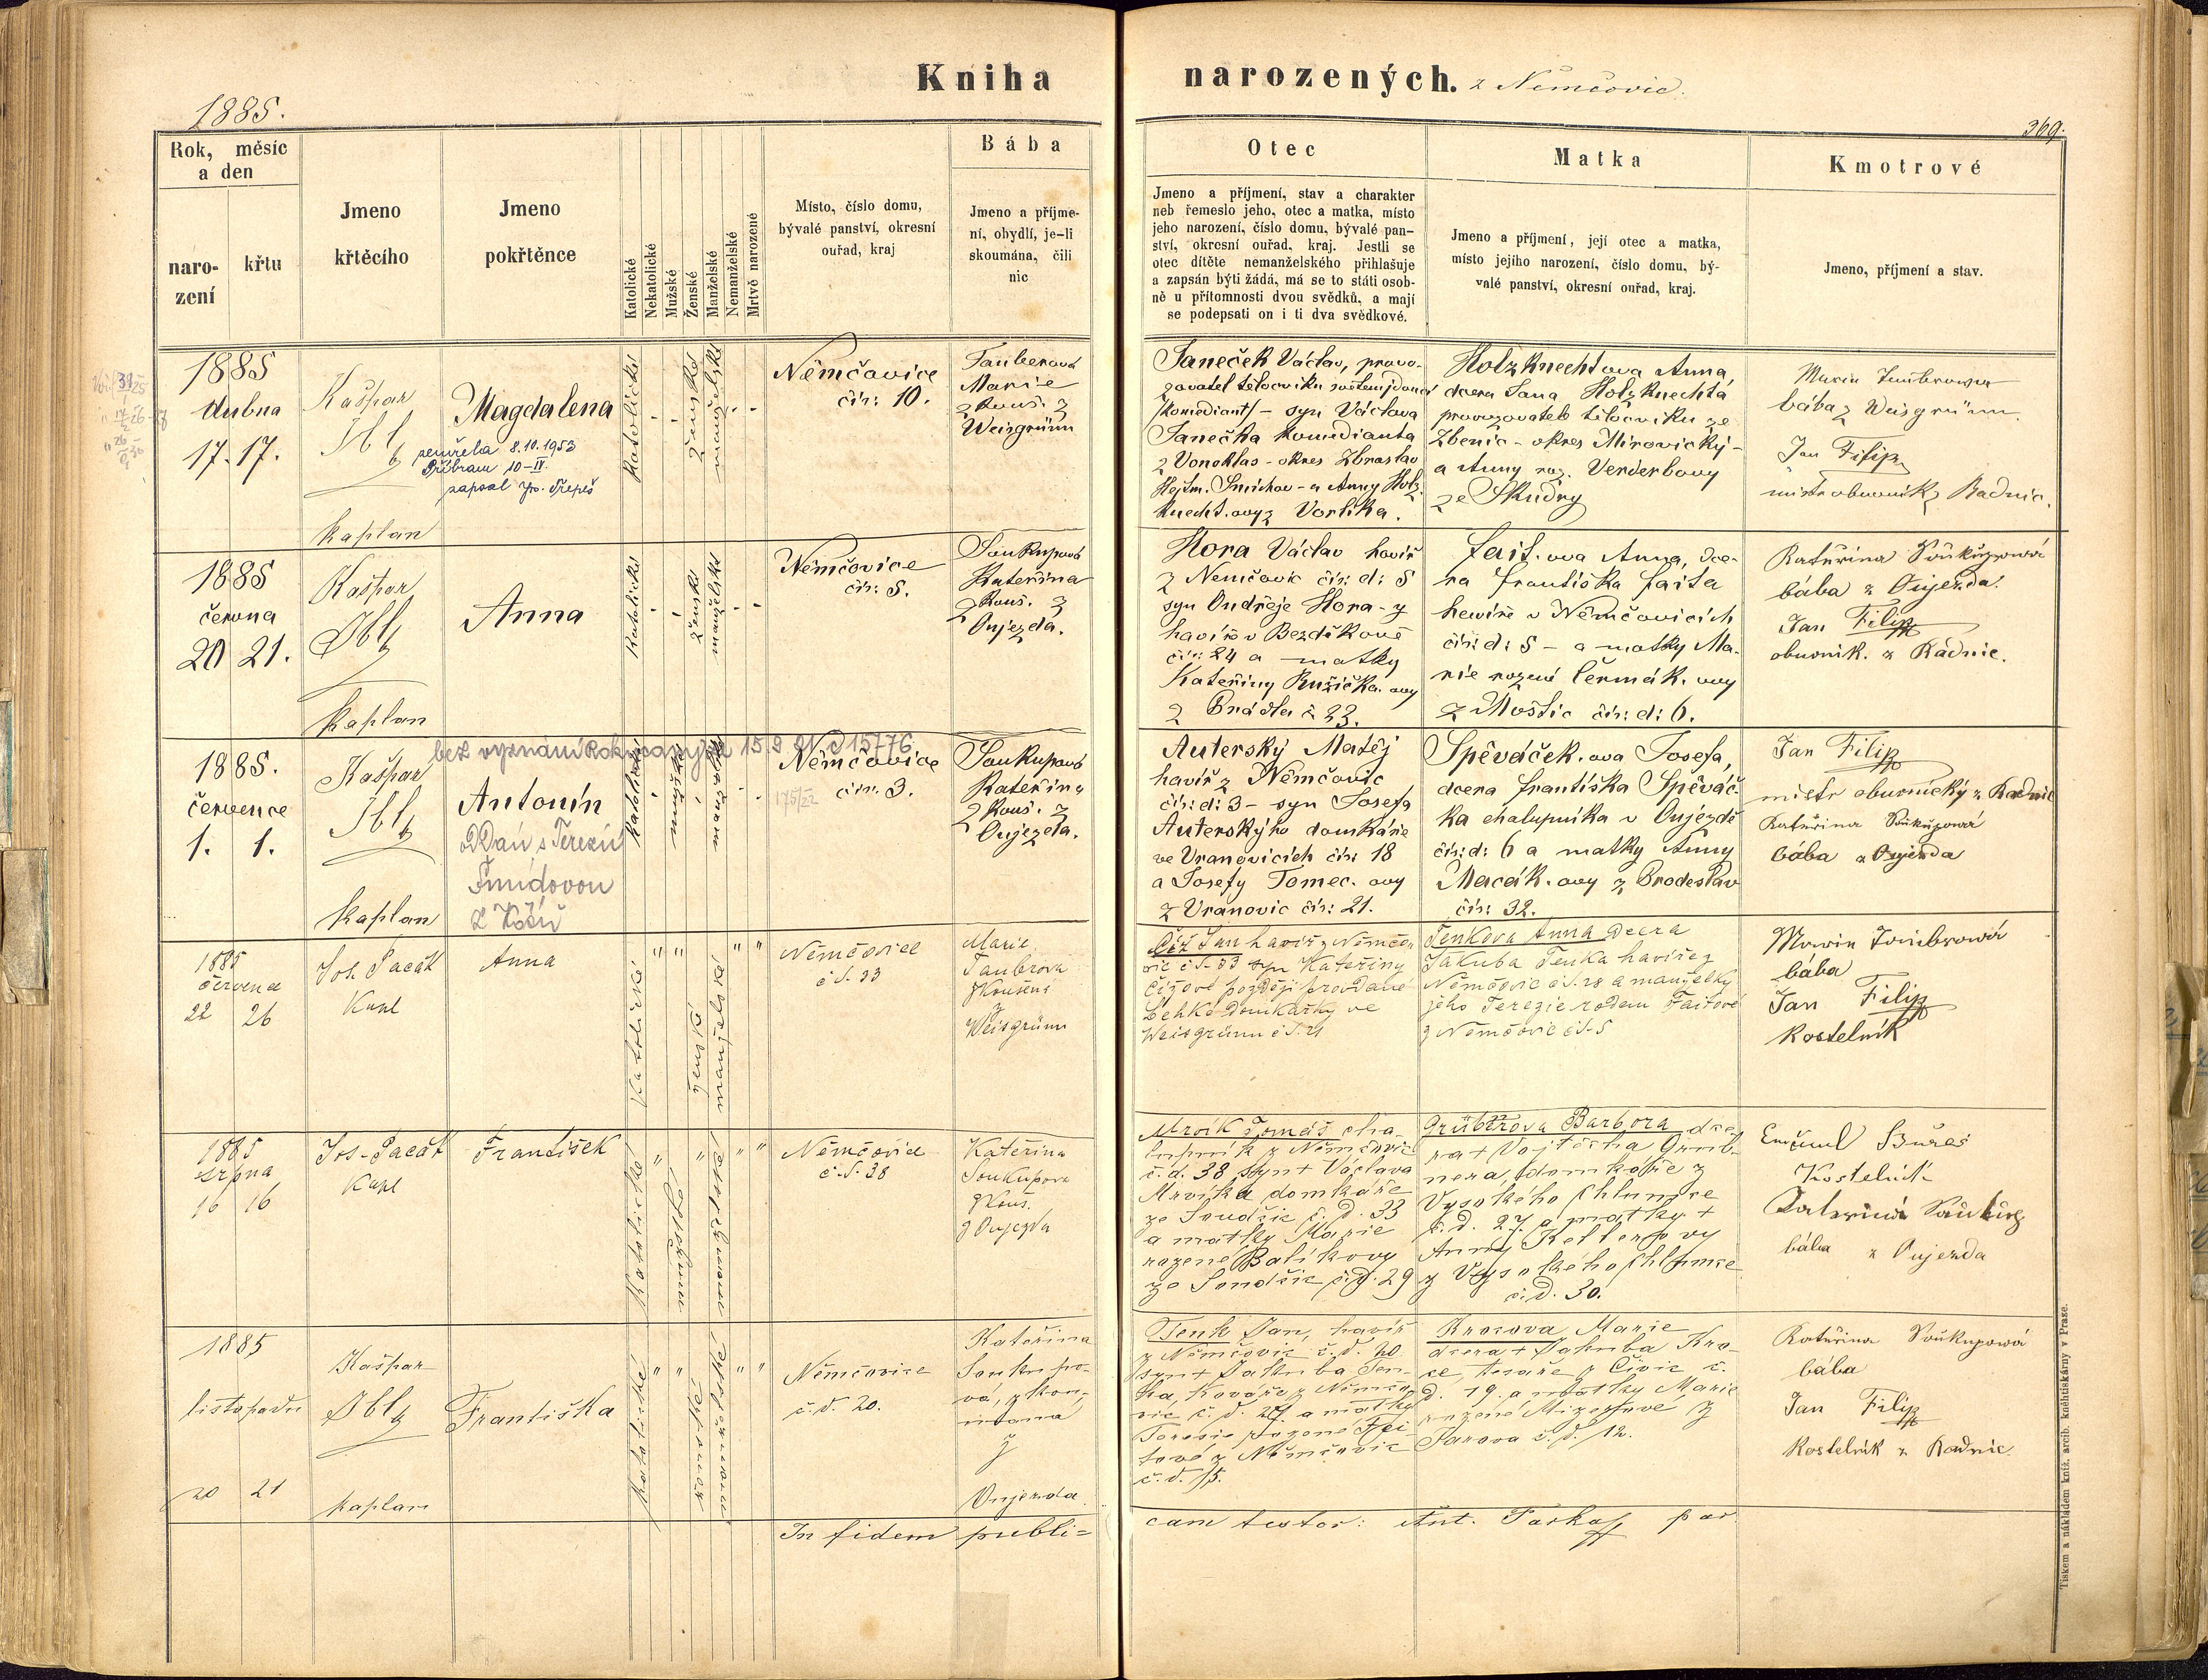 Kniha narozených. z Němčovic.
1885.
369.
Rok, měsíc
a den
naro-
zení
křtu
Jmeno
křtěcího
Jmeno
pokřtěnce
Katolické
Nekatolické
Mužské
Ženské
Manželské
Nemanželské
Mrtvě narozené
Místo, číslo domu,
bývalé panství, okresní
ouřad, kraj
Bába
Jmeno a příjme-
ní, obydlí, je-li
skoumána, čili
nic
Otec
Jmeno a příjmení, stav a charakter
neb řemeslo jeho, otec a matka, místo
jeho narození, číslo domu, bývalé pan-
ství, okresní ouřad, kraj. Jestli se
otec dítěte nemanželského přihlašuje
a zapsán býti žádá, má se to státi osob-
ně u přítomnosti dvou svědků, a mají
se podepsati on i ti dva svědkové.
Matka
Jmeno a příjmení, její otec a matka,
místo jejího narození, číslo domu, bý-
valé panství, okresní ouřad, kraj.
Kmotrové
Jmeno, příjmení a stav.
1885
dubna
17. 17.
Kašpar
Ibl
kaplan
Magdalena
zemřela 8.10.1953
Příbram 10-IV.
zapsal
Katolické
ženské
manželské
Němčovice
čís: 10.
Tauberová
Marie
zkouš. z
Weisgrünn
Janeček Václav, provo-
zovatel tělocviku
/komediant/ - syn Václava
Janečka komedianta
z Vonoklas - okres Zbraslav
Hejtm. Smíchov - a Anny Holz-
knecht.ovy z Vorlíka.
Holzknechtova Anna,
dcera Jana Holzknechta
provozovatele tělocviku ze
Zbenic - okres Mirovický -
a Anny roz. Verderbovy
ze Skudry
Marie Taubrowa
bába z Weisgrünn.
Jan Filip
mistr obuvník z Radnic.
1885
června
20 21.
Kašpar
Ibl
kaplan
Anna
Katolické
ženské
manželské
Němčovice
čís: 5.
Soukupová
Kateřina
zkouš. z
Oujezda.
Hora Václav havíř
z Němčovic čís: d: 5
syn Ondřeje Hora - z
havíře v Bezděkově
čís: 24 a matky
Kateřiny Růžička.ovy
z Brádla č 23.
Fait.ova Anna, dce-
ra Františka Faita
havíře v Němčovicích
čís: d: 5 - a matky Ma-
rie rozené Čermák.ovy
z Moštic čís: d: 6.
Kateřina Soukupowá
bába z Oujezda.
Jan Filip
obuvník. z Radnic.
bez vyznání
1885.
července
1. 1.
Kašpar
Ibl
kaplan
Antonín
Oddán s Terezií
Šmídovou
Katolické
mužské
manželské
Němčovice
čís. 3.
Soukupová
Kateřina
zkouš. z
Oujezda.
Auterský Matěj
havíř z Němčovic
čís: d: 3 - syn Josefa
Auterskýho domkáře
ve Vranovicích čís: 18
a Josefy Tomec.ovy
z Vranovic čís: 21.
Spěváček.ova Josefa,
dcera Františka Spěváč-
ka chalupníka v Oujezdě
čís: d: 6 a matky Anny
Macák.ovy z Brodeslav
čís: 32.
Jan Filip
mistr obuvnický z Radnic
Kateřina Soukupowá
bába z Oujezda
1885
července
22 26
Jos. Pacák
Kapl
Anna
Katolické
ženské
manželské
Němčovice
č d. 33
Marie
Taubrova
zkoušená
z
Weisgrünn
Číž Jan havíř z Němčo-
vic č d. 33 syn Kateřiny
Čížové později provdané
Lehké domkářky ve
Weisgrünn č d. 21
Tenkova Anna dcera
Jakuba Tenka havíře z
Němčovic č d. 28 a manželky
jeho Terezie rodem Faitové
z Němčovic č d. 5
Marie Taubrowá
bába
Jan Filip
kostelník
1885
srpna
16 16
Jos. Pacák
Kapl
František
Katolické
manželské
Němčovice
č. d. 38
Kateřina
Soukupova
zkouš.
z Oujezda
Mrvík Tomáš cha-
lupník z Němčovic
č. d. 38 syn + Václava
Mrvíka domkáře
ze Soudšic č. d. 33
a matky Marie
rozené Balíkovy
ze Soudšic č. d. 29
Grübnerova Barbora dce-
ra + Vojtěcha Grüb-
nera, domkáře z
Vysokého Chlumce
č. d. 27. a matky +
Anny Kellerovy
z Vysokého Chlumce
č. d. 30.
Bureš
Kostelník
bába z Oujezda
1885
listopadu
20 21
Kašpar
Ibl
kaplan
Františka
Katolické
ženské
manželské
Němčovice
č. d. 20.
Kateřina
Soukupo-
vá, zkou-
maná
z
Oujezda
Tenk Jan, havíř
z Němčovic č. d. 20
syn + Jakuba Ten-
ka, kováře z Němčo-
vic č. d. 28. a matky
Terezie rozené Fai-
tové z Němčovic
č. d. 15.
Krocova Marie
dcera + Jakuba Kro-
ce, tesaře z Čivic č.
d. 19. a matky Marie
rozené z
d. 12.
Kateřina Soukupowá
bába
Jan Filip
Kostelník z Radnic
In fidem publi=
cam testor: Ant. par.
Tiskem a nákladem kníž. arcib. kněhtiskárny v Praze.